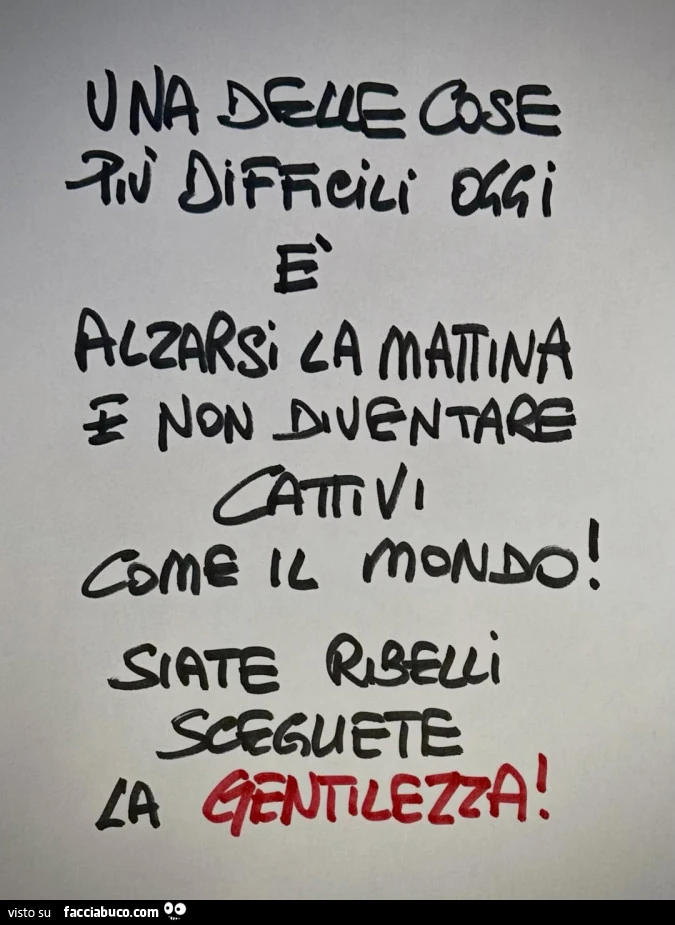 UNA DELLE COSE
PIÙ DIFFICILI OGGI
E'
ALZARSI LA MATTINA
E NON DIVENTARE
CATTIVI
COME IL MONDO!
SIATE RIBELLI
SCEGLIETE
LA GENTILEZZA!
visto su facciabuco.com